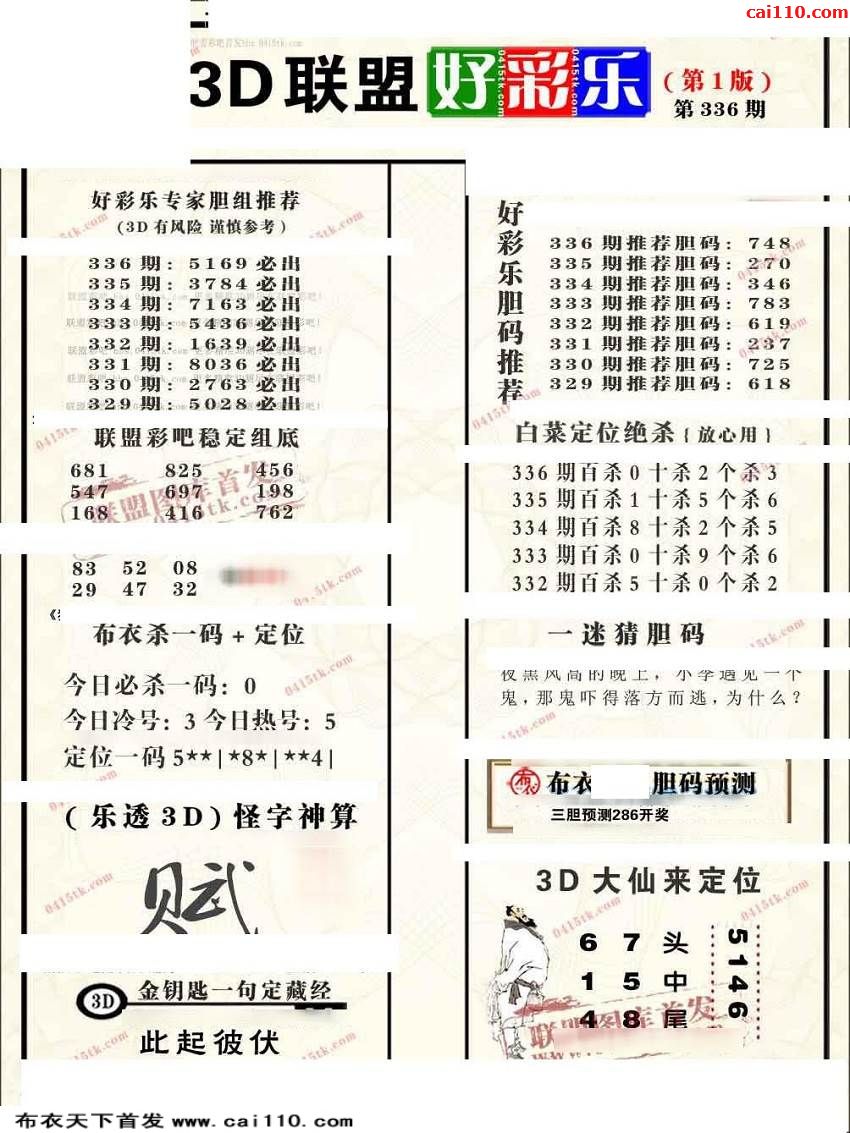 cai110.com
3D联盟好彩乐
(第1版)
第336期
好彩乐专家胆组推荐
(3D有风险 谨慎参考)
336期: 5169必出
335期: 3784必出
334期: 7163必出
333期: 5436必出
332期: 1639必出
331期: 8036必出
330期: 2763必出
329期: 5028必出
联盟彩吧稳定组底
681 825 456
547 697 198
168 416 762
83 52 08
29 47 32
布衣杀一码+定位
今日必杀一码: 0
今日冷号: 3 今日热号: 5
定位一码5**|*8*|**4|
(乐透3D)怪字神算
赋
3D 金钥匙一句定藏经
此起彼伏
好彩乐胆码推荐
336期推荐胆码: 748
335期推荐胆码: 270
334期推荐胆码: 346
333期推荐胆码: 783
332期推荐胆码: 619
331期推荐胆码: 237
330期推荐胆码: 725
329期推荐胆码: 618
白菜定位绝杀{放心用}
336期百杀0十杀2个杀3
335期百杀1十杀5个杀6
334期百杀8十杀2个杀5
333期百杀0十杀9个杀6
332期百杀5十杀0个杀2
一迷猜胆码
夜黑风高的晚上, 小李遇见一个
鬼, 那鬼吓得落方而逃, 为什么?
布衣 胆码预测
三胆预测286开奖
3D大仙来定位
6 7 头
1 5 中
4 8 尾
5146
联盟图库首发
0415tk.com
布衣天下首发 www.cai110.com